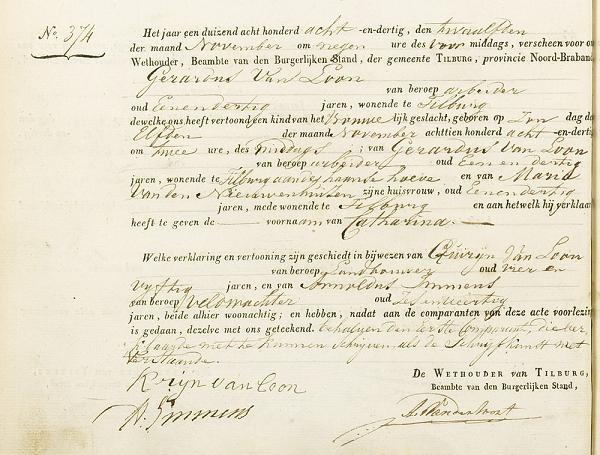 No. 374
Het jaar een duizend acht honderd acht -en-dertig, den twaalften
der maand November om negen ure des voor middags, verscheen voor on
Wethouder, Beambte van den Burgerlijken Stand, der gemeente TILBURG, provincie Noord-Braband
Gerardus Van Loon
van beroep arbeider
oud Eenendertig jaren, wonende te Tilburg
dewelke ons heeft vertoond een kind van het Vrouwe lijk geslacht, geboren op Zon dag de
Elfden der maand November achttien honderd acht -en-dertig
om twee ure, des middags ; van Gerardus Van Loon
van beroep arbeider oud Een en dertig
jaren, wonende te Tilburg aan de haansche hoeve en van Maria
Van den Nieuwenhuisen zijne huisvrouw, oud Eenendertig
jaren, mede wonende te Tilburg en aan hetwelk hij verklaar
heeft te geven de voornaam van Catharina.
Welke verklaring en vertooning zijn geschiedt in bijwezen van Quirijn Van Loon
van beroep Landbouwer oud vier en
vyftig jaren, en van Arnoldus Immens
van beroep Veldwachter oud zesenveertig
jaren, beide alhier woonachtig; en hebben, nadat aan de comparanten van deze acte voorlezing
is gedaan, dezelve met ons geteekend. behalven den eerste Comparant, die ver
klaarde niet te kunnen schrijven als de Schrijfkunst niet
verstaande.
Krijn van Loon
A. Immens
DE WETHOUDER VAN TILBURG,
Beambte van den Burgerlijken Stand,